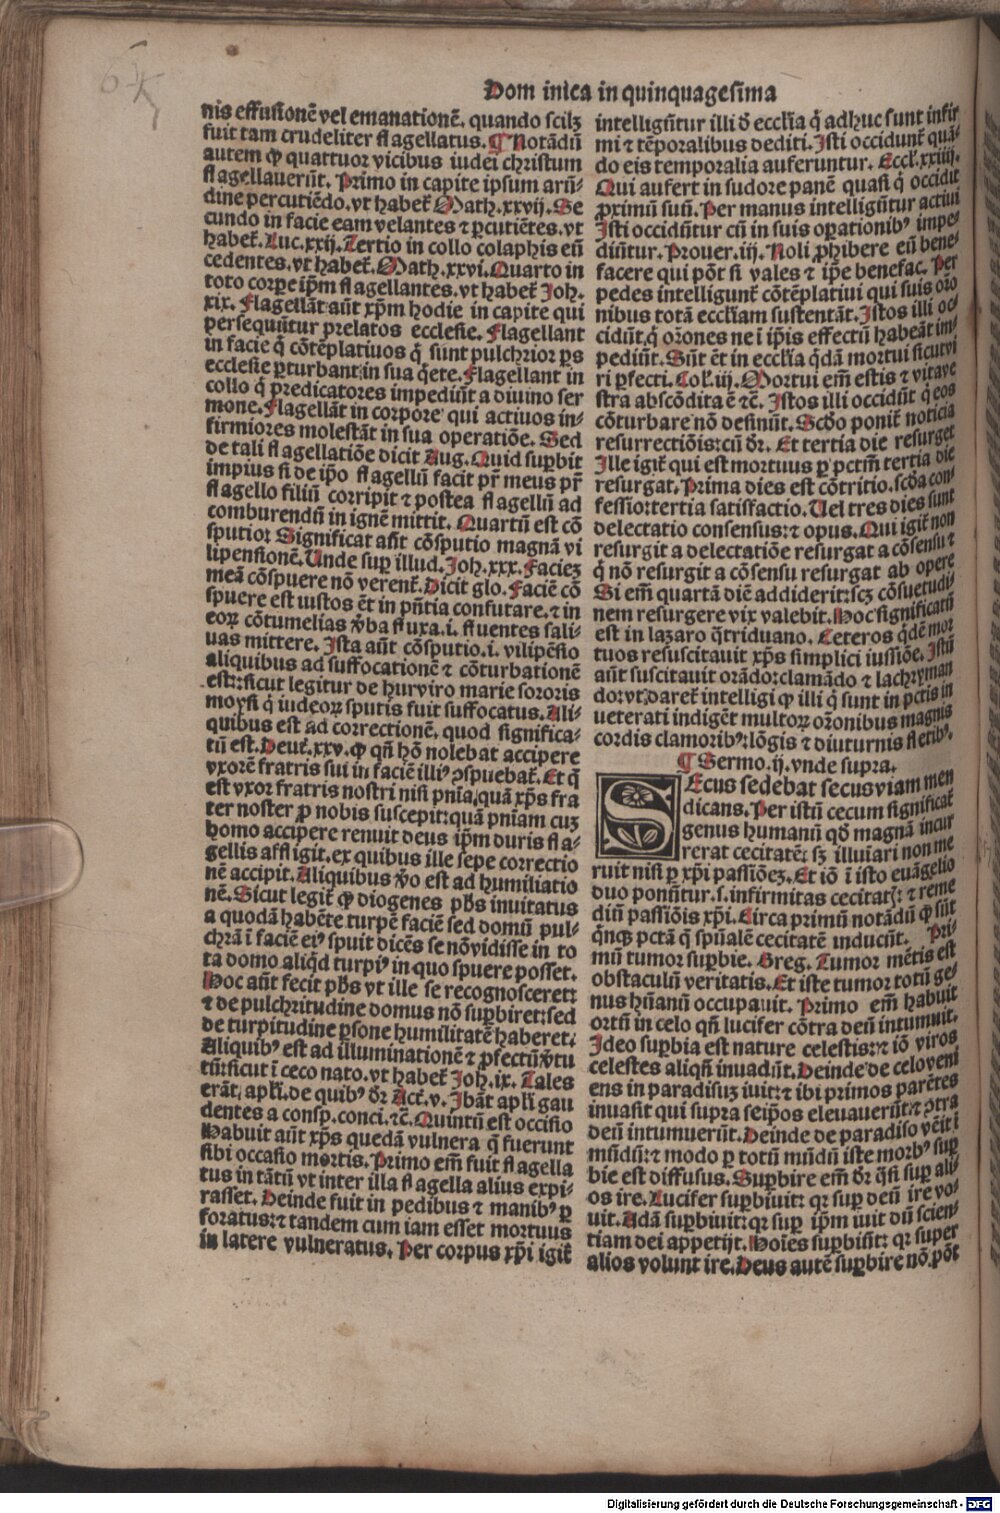 Dom inica in quinquagesima
nis effusionē vel emanationē. quando scilꝫ
fuit tam crudeliter flagellatus. ¶ Notādū
autem ꝙ quattuor vicibus iudei christum
flagellauerūt. Primo in capite ipsum arū⸗
dine percutiēdo. vt habet᷑ Math. xxvij. Se
cundo in facie eam velantes ⁊ ꝑcutiētes. vt
habet᷑. Luc. xxij. Tertio in collo colaphis eū
cedentes. vt habet᷑. Math. xxvi. Quarto in
toto corpe ip̄m flagellantes. vt habet᷑ Joh.
xix. Flagellāt aūt xp̄m hodie in capite qui
persequūtur prelatos ecclesie. Flagellant
in facie q̇ cōtēplatiuos q̇ sunt pulchrior ꝑs
ecclesie ꝑturbant: in sua q̇ete. Flagellant in
collo q̇ predicatores impediūt a diuino ser
mone. Flagellāt in corpore qui actiuos in⸗
firmiores molestāt in sua operatiōe. Sed
de tali flagellatiōe dicit Aug. Quid suꝑbit
impius si de ip̄o flagellū facit pr̄ meus pr̄
flagello filiū corripit ⁊ postea flagellū ad
comburendū in ignē mittit. Quartū est cō
sputio: Significat aūt cōsputio magnā vi
lipensionē. Unde suꝑ illud. Joh. xxx. Faciez
meā cōspuere nō verent᷑. Dicit glo. Faciē cō
spuere est iustos ēt in pn̄tia confutare. ⁊ in
eoꝝ cōtumelias v̄ba fluxa. i. fluentes sali⸗
uas mittere. Ista aūt cōsputio. i. vilipēsio
aliquibus ad suffocationē ⁊ cōturbationē
est: sicut legitur de hurviro marie sororis
moysi q̇ iudeoꝝ sputis fuit suffocatus. Ali⸗
quibus est ad correctionē. quod significa⸗
tū est. Deut᷑. xxv. ꝙ qn̄ hō nolebat accipere
vxorē fratris sui in faciē illiꝰ ↄspuebat᷑. Et q̄
est vxor fratris nostri nisi pn̄ia, quā xp̄s fra
ter noster ꝓ nobis suscepit: quā pniam cuꝫ
homo accipere renuit deus ip̄m duris fla⸗
gellis affligit. ex quibus ille sepe correctio
nē accipit. Aliquibus v̄o est ad humiliatio
nē. Sicut legit᷑ ꝙ diogenes ph̄s inuitatus
a quodā habēte turpē faciē sed domū pul⸗
chrā ī faciē eiꝰ spuit dicēs se nō vidisse in to
ta domo aliq̇d turpiꝰ in quo spuere posset.
Hoc aūt fecit ph̄s vt ille se recognosceret:
⁊ de pulchritudine domus nō suꝑbiret: sed
de turpitudine ꝑsone humilitatē haberet.
Aliquibꝰ est ad illuminationē ⁊ ꝓfectū v̄tu
tū: sicut ī ceco nato. vt habet᷑ Joh. ix. Tales
erāt᷑. apl̄i. de quibꝰ dr̄ Act᷑. v. Ibāt apl̄i gau
dentes a consp. conci. ⁊c̄. Quintū est occisio
Habuit aūt xp̄s quedā vulnera q̄ fuerunt
sibi occasio mortis. Primo em̄ fuit flagella
tus in tātū vt inter illa flagella alius expi⸗
rasset. Deinde fuit in pedibus ⁊ manibꝰ ꝑ
foratus: ⁊ tandem cum iam esset mortuus
in latere vulneratus. Per corpus xp̄i igit᷑
intelligūtur illi ꝺ̄ eccl̄ia q̇ adhuc sunt infir
mi ⁊ tēporalibus dediti. Isti occidunt᷑ quā⸗
do eis temporalia auferuntur. Eccl̄. xxiiij.
Qui aufert in sudore panē quasi q̇ occidit
ꝓximū suū. Per manus intelligūtur actiui
Isti occidūtur cū in suis oꝑationibꝰ impe⸗
diūtur. Prouer. iij. Noli ꝓhibere eū bene⸗
facere qui pōt si vales ⁊ ip̄e benefac. Per
pedes intelligunt᷑ cōtēplatiui qui suis or̄o
nibus totā eccl̄iam sustentāt. Istos illi oc⸗
cidūt, q̇ or̄ones ne ī ip̄is effectū habeāt im⸗
pediūt. Sūt ēt in eccl̄ia q̇dā mortui sicut vi
ri ꝑfecti. Col᷑. iij. Mortui em̄ estis ⁊ vita ve
stra abscōdita ē ⁊c̄. Istos illi occidūt q̇ eos
cōturbare nō desinūt. Scd̄o ponit᷑ noticia
resurrectiōis: cū dr̄. Et tertia die resurget
Ille igit᷑ qui est mortuus ꝑ pctm̄ tertia die
resurgat. Prima dies est cōtritio. scd̄a con
fessio: tertia satisfactio. Uel tres dies sunt
delectatio consensus: ⁊ opus. Qui igit᷑ non
resurgit a delectatiōe resurgat a cōsensu ⁊
q̇ nō resurgit a cōsensu resurgat ab opere
Si em̄ quartā diē addiderit: scꝫ cōsuetudi⸗
nem resurgere vix valebit. Hoc significatū
est in lazaro q̄triduano. Ceteros q̇dē mor
tuos resuscitauit xp̄s simplici iussiōe. Istū
aūt suscitauit orādo: clamādo ⁊ lachryman
do: vt daret᷑ intelligi ꝙ illi q̇ sunt in pctis in
ueterati indigēt multoꝝ or̄onibus magnis
cordis clamoribꝰ: lōgis ⁊ diuturnis fletibꝰ.
¶ Sermo. ij. vnde supra.
SEcus sedebat secus viam men
dicans. Per istū cecum significat᷑
genus humanū qd̄ magnā incur
rerat cecitatē: sꝫ illuīari non me
ruit nisi ꝑ xp̄i passiōeꝫ. Et iō ī isto euāgelio
duo ponūtur. s. infirmitas cecitatꝭ: ⁊ reme
diū passiōis xp̄i. Circa primū notādū ꝙ sūt
q̇nqꝫ pctā q̄ spūalē cecitatē inducūt. Pri⸗
mū tumor suꝑbie. Greg. Tumor mētis est
obstaculū veritatis. Et iste tumor totū ge⸗
nus hūanū occupauit. Primo em̄ habuit
ortū in celo qn̄ lucifer cōtra deū intumuit.
Ideo suꝑbia est nature celestis: ⁊ iō viros
celestes aliqn̄ inuadūt. Deinde de celo veni
ens in paradisuꝫ iuit: ⁊ ibi primos parētes
inuasit qui supra seip̄os eleuauerūt: ⁊ ↄtra
deū intumuerūt. Deinde de paradiso vēit ī
mūdū: ⁊ modo ꝑ totū mūdū iste morbꝰ suꝑ
bie est diffusus. Suꝑbire em̄ dr̄ q̄si suꝑ ali⸗
os ire. Lucifer suꝑbiuit: qꝛ suꝑ deū ire vo⸗
uit. Adā suꝑbiuit: qꝛ suꝑ ip̄m iuit dū scien⸗
tiam dei appetijt. Hoīes suꝑbiūt: qꝛ super
alios volunt ire. Deus autē suꝑbire nō pōt
Digitalisierung gefördert durch die Deutsche Forschungsgemeinschaft - DFG